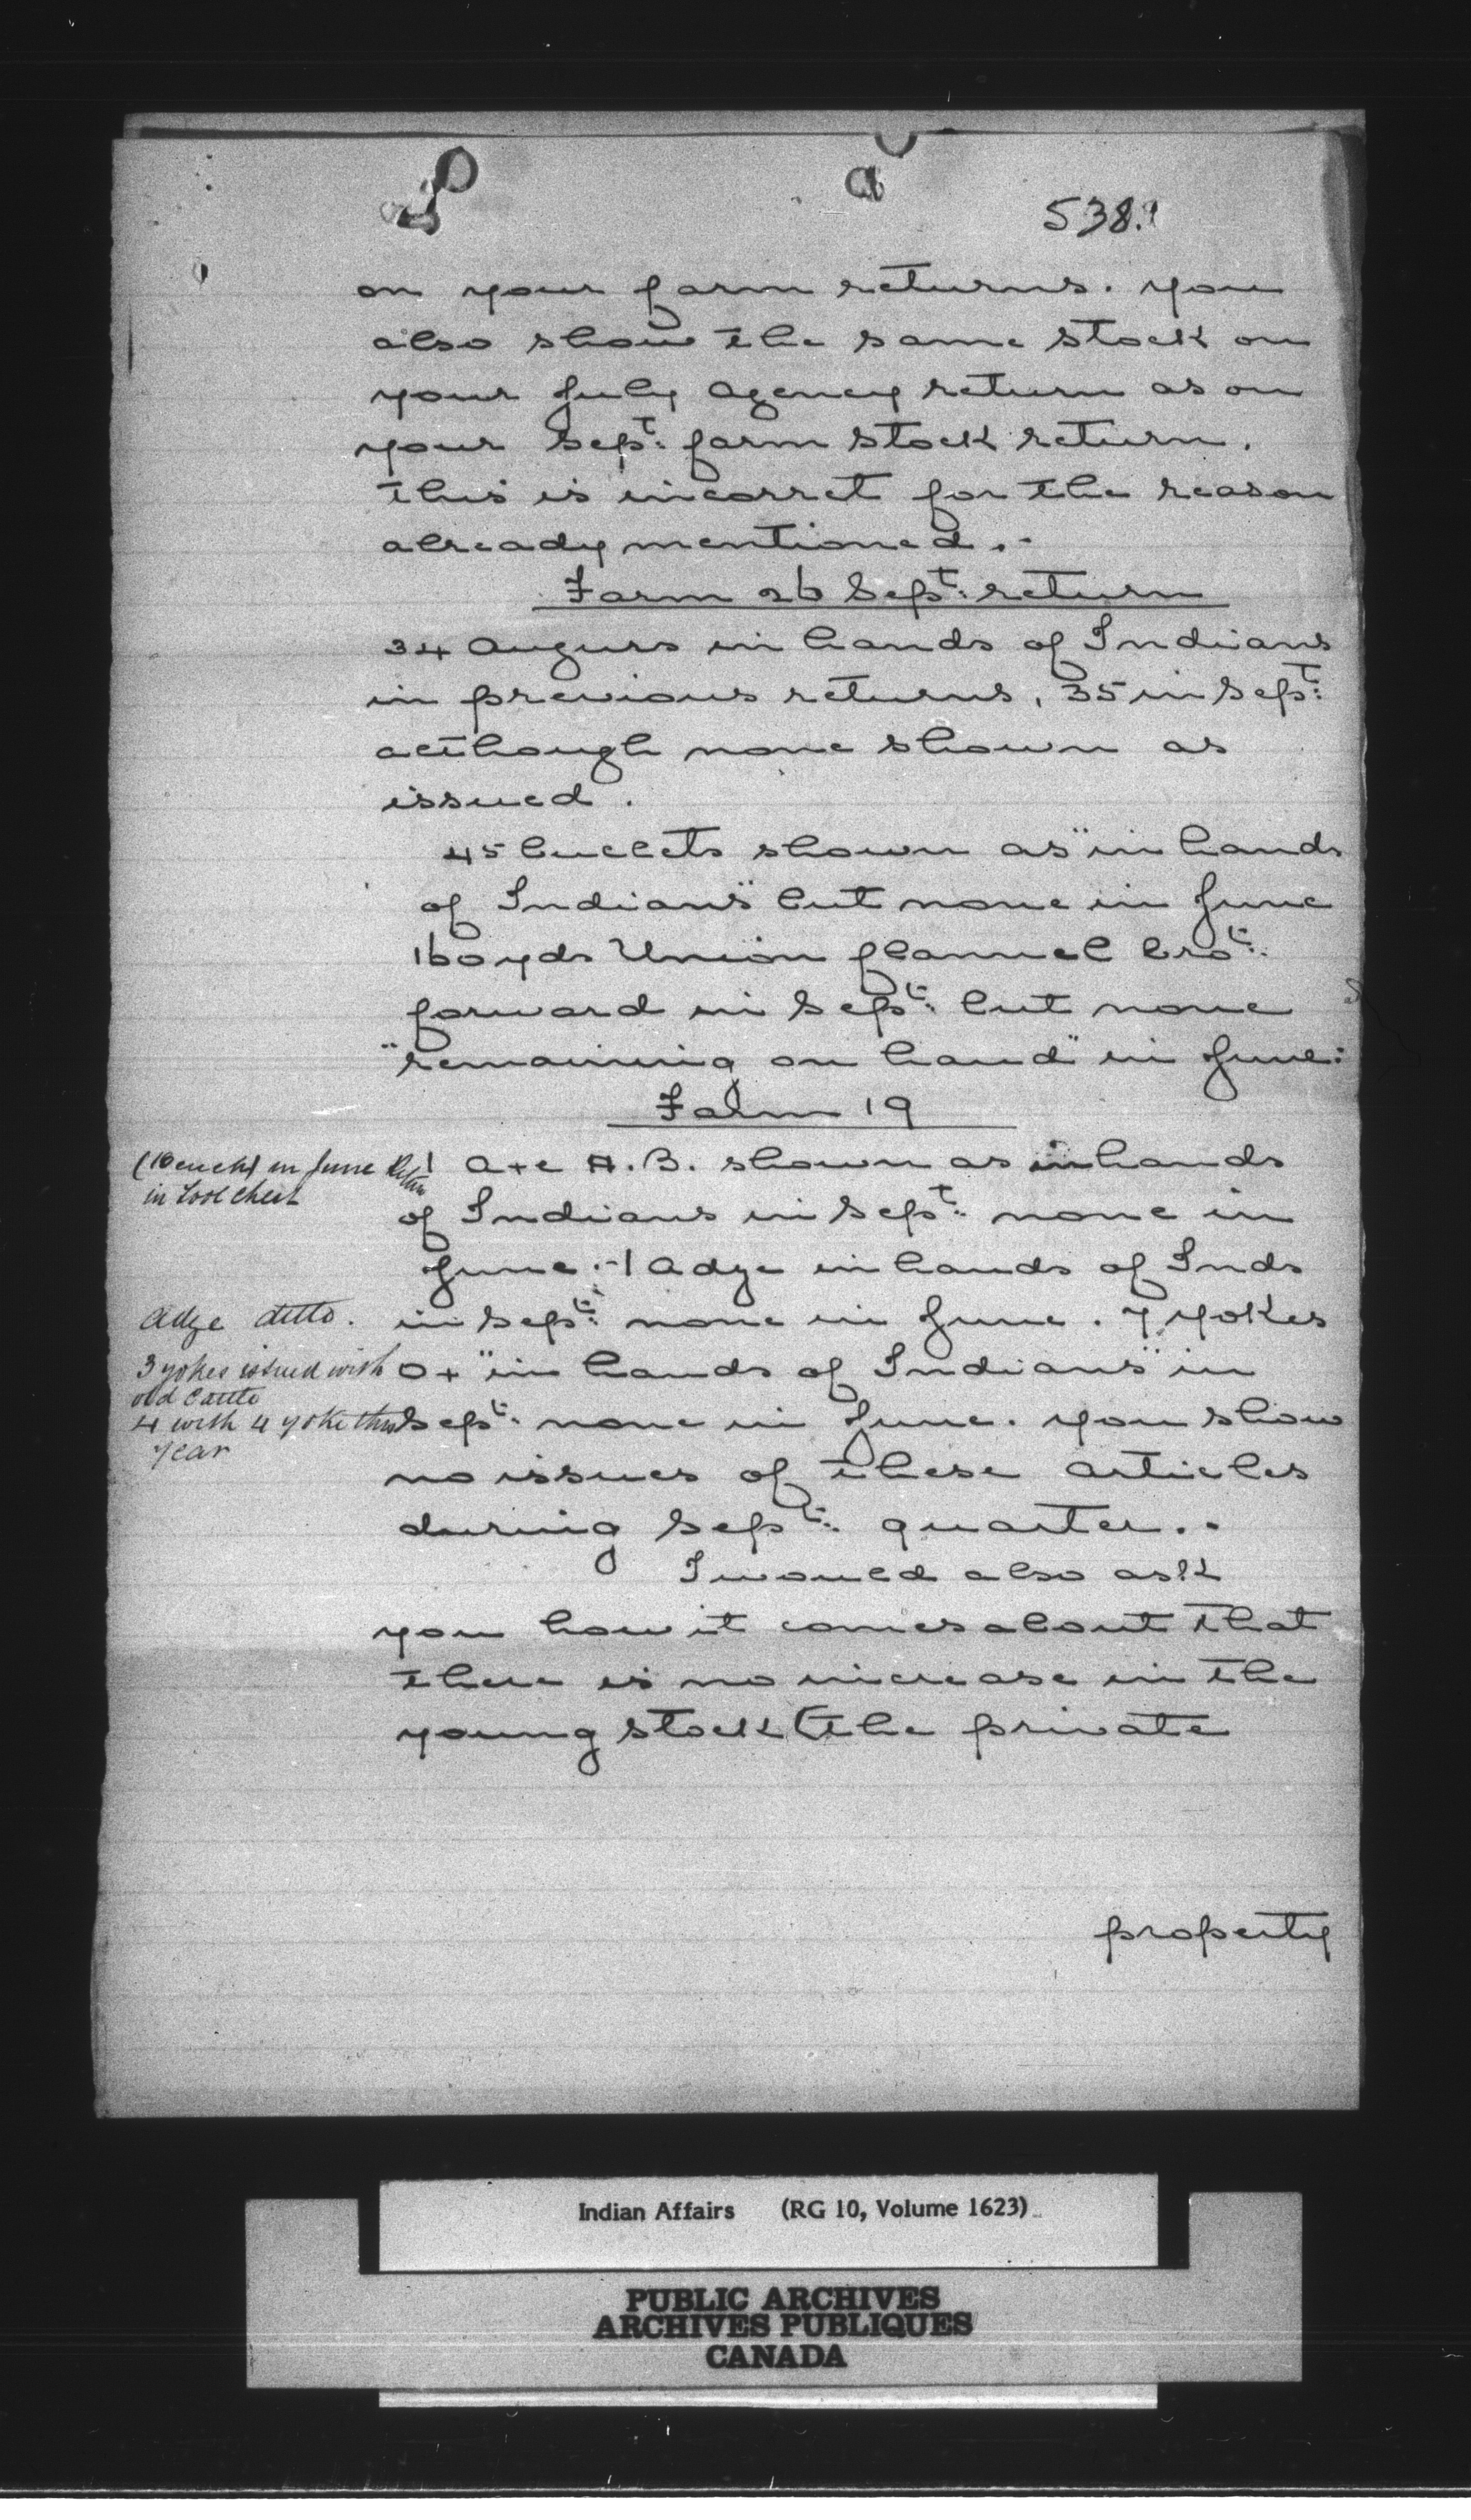 538.
on your farm returns. you
also show the same stock on
your July Agency return as on
your Sept: farm stock return.
this is incorret for the reason
already mentioned.-
Farm 26 Sept: return
34 Augurs in hands of Indians
in previous returns, 35 in Sept:
although none shown as
issued.
45 bullets shown as "in hands
of Indians" but none in June
160 yds Union flannel brot:
forward in Sept: but none
"remaining on hand" in June:
Farm 19
( each) in June Retn
in Tool Chest
1 axe H.B. shown as in hands
of Indians in Sept: none in
June.-1 Adze in hands of Inds
Adze ditto.
in Sept: none in June. 7 yokes
3 yokes issued with
old Cattle
Ox "in hands of Indians" in
4 with 4 yoke this
year
Sept: none in June. you show
no issues of these articles
during Sept: quarter..
I would also ask
you how it comes about that
there is no increase in the
young stock (the private
property
Indian Affairs (RG 10, Volume 1623)
PUBLIC ARCHIVES
ARCHIVES PUBLIQUES
CANADA